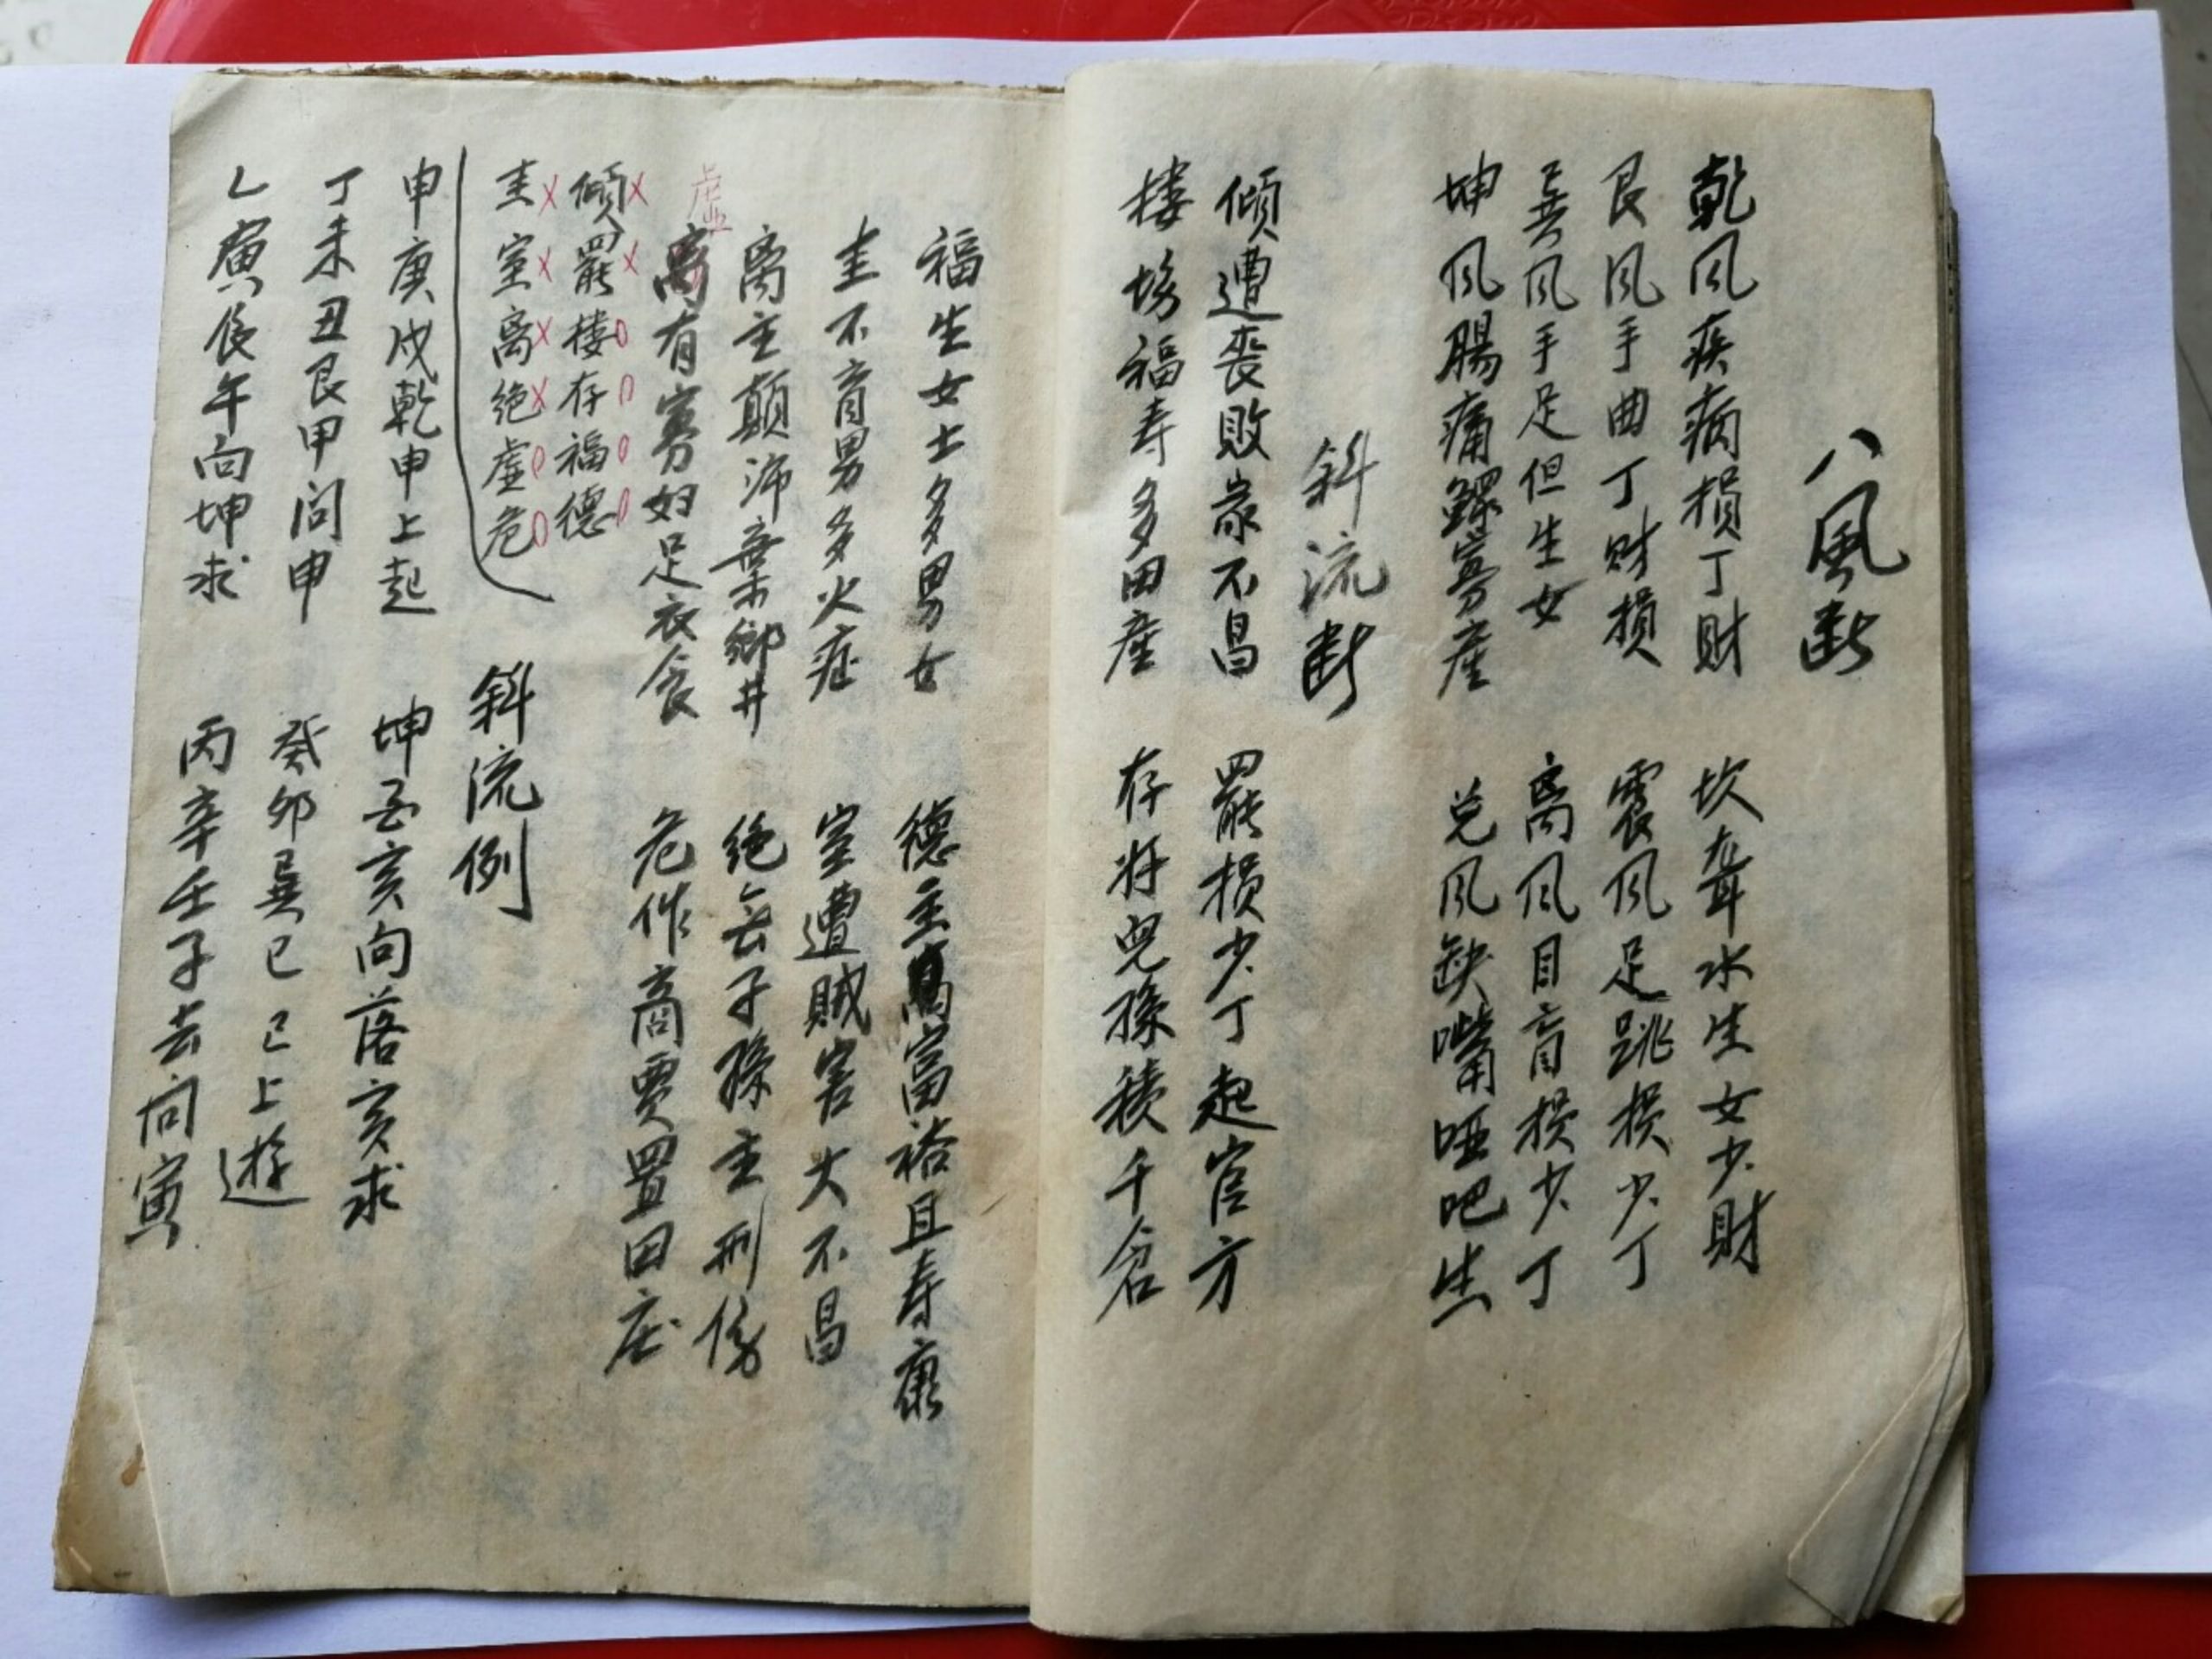 八風断
乾风疾病損丁財
坎聋水生女少財
艮风手曲丁财損
震风足跳損少丁
巽风手足但生女
离风目盲損少丁
坤风腸痛鳏寡産
兑风缺嘴哑吧生
斜流断
傾遭喪敗家不昌
罷損少丁起官方
楼 福寿多田産
存将兒孫積千倉
福生女士多男女
德主 富裕且寿康
圭不育男多火症
室遭賊害大不昌
离主顛沛棄鄉井
绝去子孫主刑伤
虚
离有寡妇足衣食
危作商賈置田庄
傾x罷x楼0存0福0德0
圭x室x离x绝x虚0危0
斜流例
申庚戍乾申上起
坤 亥向落亥求
丁未丑艮甲问申
癸卯巽巳已上遊
乙寅 午向坤求
丙辛壬子去向寅